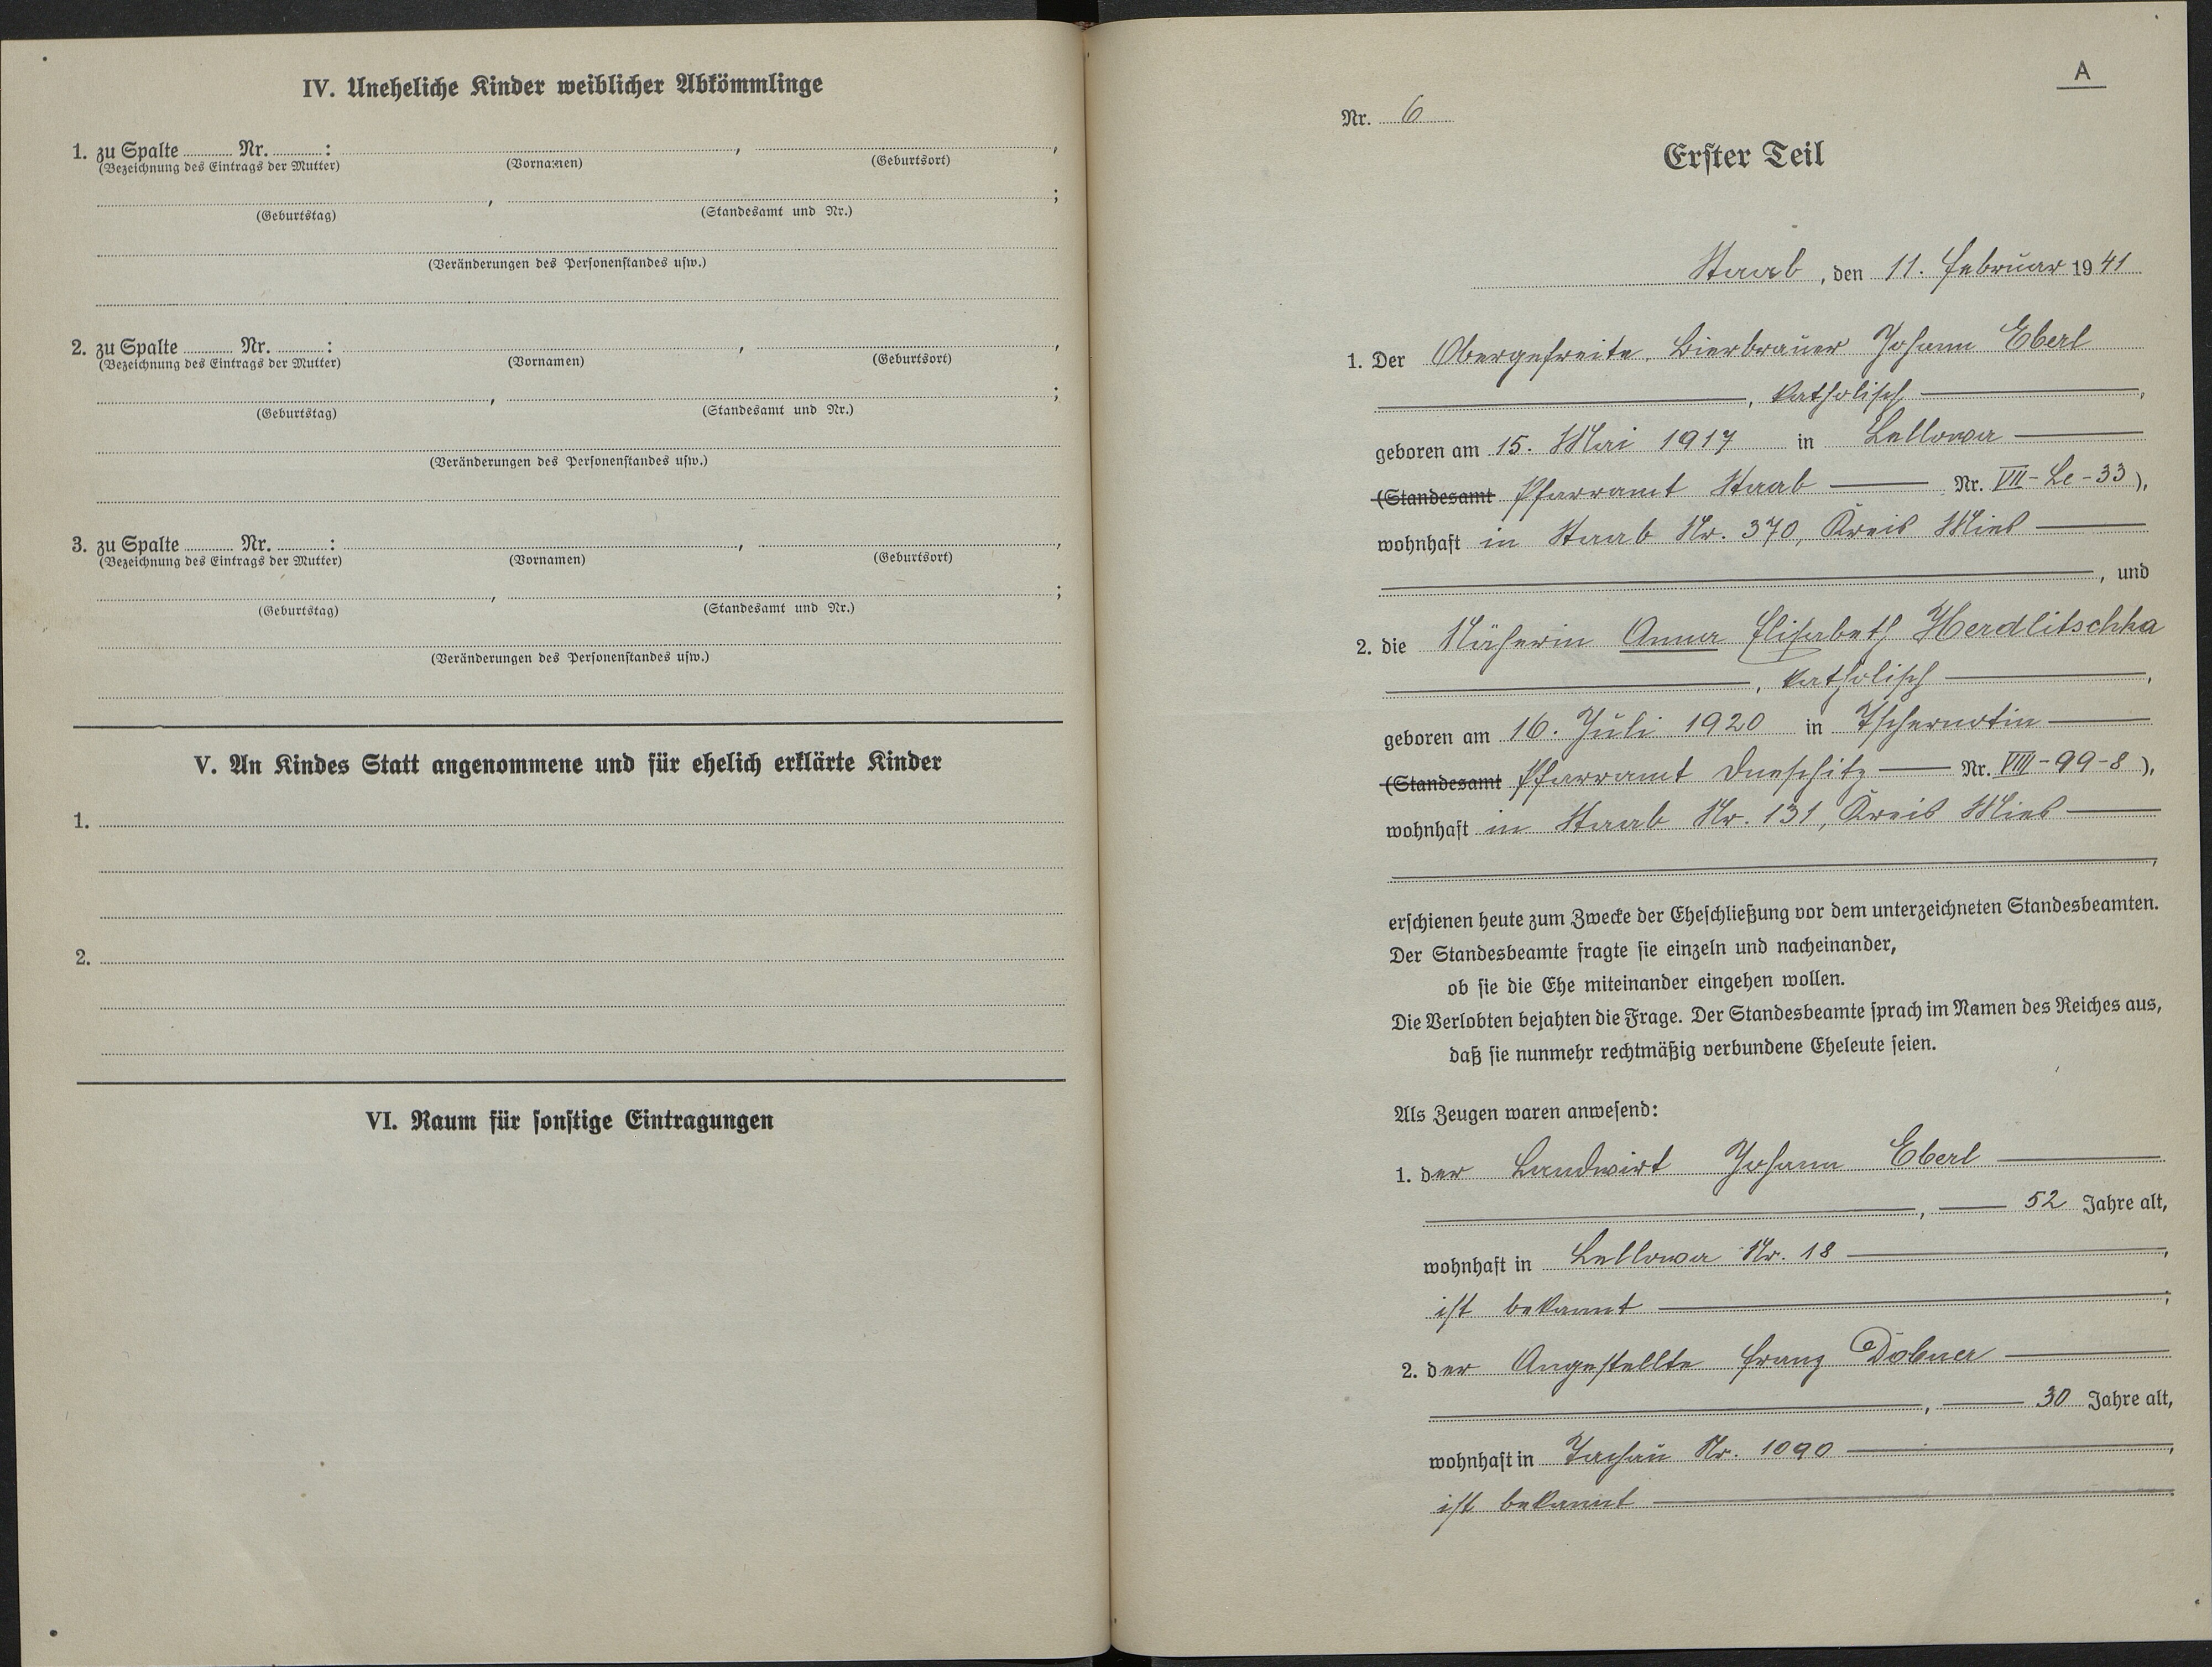 IV. Uneheliche Kinder weiblicher Abkömmlinge
1. zu Spalte ........ Nr. ........ :
(Bezeichnung des Eintrags der Mutter) (Vornamen) (Geburtsort)
(Geburtstag) (Standesamt und Nr.)
(Veränderungen des Personenstandes usw.)
2. zu Spalte ........ Nr. ........ :
(Bezeichnung des Eintrags der Mutter) (Vornamen) (Geburtsort)
(Geburtstag) (Standesamt und Nr.)
(Veränderungen des Personenstandes usw.)
3. zu Spalte ........ Nr. ........ :
(Bezeichnung des Eintrags der Mutter) (Vornamen) (Geburtsort)
(Geburtstag) (Standesamt und Nr.)
(Veränderungen des Personenstandes usw.)
V. An Kindes Statt angenommene und für ehelich erklärte Kinder
1.
2.
VI. Raum für sonstige Eintragungen
A
Nr. 6
Erster Teil
Staab, den 11. Februar 1941
1. Der Obergefreite, Bierbrauer Johann Eberl
, katholisch,
geboren am 15. Mai 1917 in Lellowa
(Standesamt Pfarramt Staab Nr. VII-Le-33),
wohnhaft in Staab Nr. 370, Kreis Mies
, und
2. die Näherin Anna Elisabeth Herdlitschka
, katholisch,
geboren am 16. Juli 1920 in Tschernotin
(Standesamt Pfarramt Dneschitz Nr. VIII-99-8),
wohnhaft in Staab Nr. 131, Kreis Mies
,
erschienen heute zum Zwecke der Eheschließung vor dem unterzeichneten Standesbeamten.
Der Standesbeamte fragte sie einzeln und nacheinander,
ob sie die Ehe miteinander eingehen wollen.
Die Verlobten bejahten die Frage. Der Standesbeamte sprach im Namen des Reiches aus,
daß sie nunmehr rechtmäßig verbundene Eheleute seien.
Als Zeugen waren anwesend:
1. der Landwirt Johann Eberl
, 52 Jahre alt,
wohnhaft in Lellowa Nr. 18,
ist bekannt;
2. der Angestellte Franz Dobner
, 30 Jahre alt,
wohnhaft in Tachau Nr. 1090,
ist bekannt.